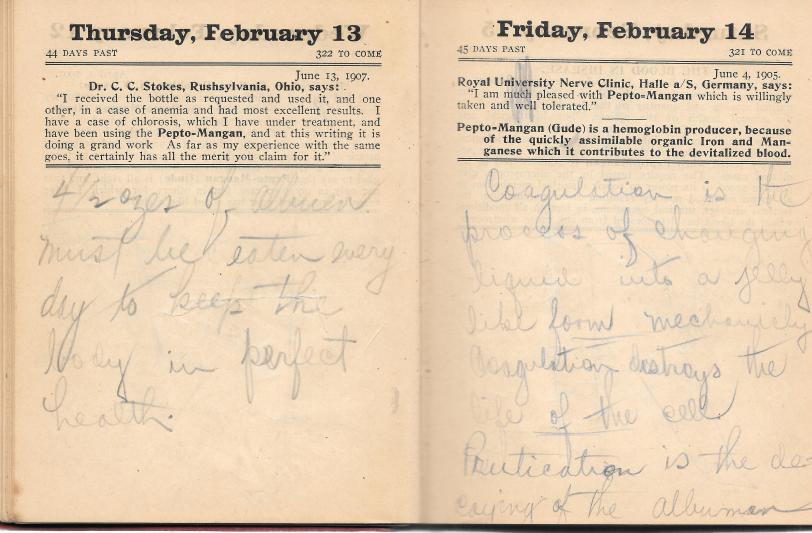 Thursday, February 13
44 DAYS PAST 322 TO COME
June 13, 1907.
Dr. C. C. Stokes, Rushsylvania, Ohio, says:
"I received the bottle as requested and used it, and one
other, in a case of anemia and had most excellent results. I
have a case of chlorosis, which I have under treatment, and
have been using the Pepto-Mangan, and at this writing it is
doing a grand work As far as my experience with the same
goes, it certainly has all the merit you claim for it."
4 1/2 ozes of albumen
must be eaten every
day to keep the
body in perfect
health.
Friday, February 14
45 DAYS PAST 321 TO COME
June 4, 1905.
Royal University Nerve Clinic, Halle a/S, Germany, says:
"I am much pleased with Pepto-Mangan which is willingly
taken and well tolerated."
Pepto-Mangan (Gude) is a hemoglobin producer, because
of the quickly assimilable organic Iron and Man-
ganese which it contributes to the devitalized blood.
Coagulation is the
process of changing
liquid into a jelly
like form mechanicly
Coagulation destroys the
life of the cell.
is the de-
caying of the albuman